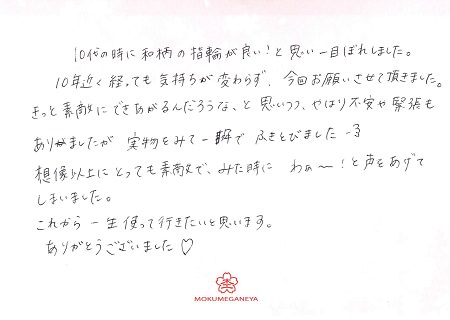 10代の時に和柄の指輪が良い！と思い一目ぼれしました。
10年近く経っても気持ちが変わらず、今回お願いさせて頂きました。
きっと素敵にできあがるんだろうな、と思いつつ、やはり不安や緊張も
ありましたが 実物をみて一瞬で ふきとびました
想像以上にとっても素敵で、みた時に わぁ〜！と声をあげて
しまいました。
これから一生使って行きたいと思います。
ありがとうございました♡
MOKUMEGANEYA